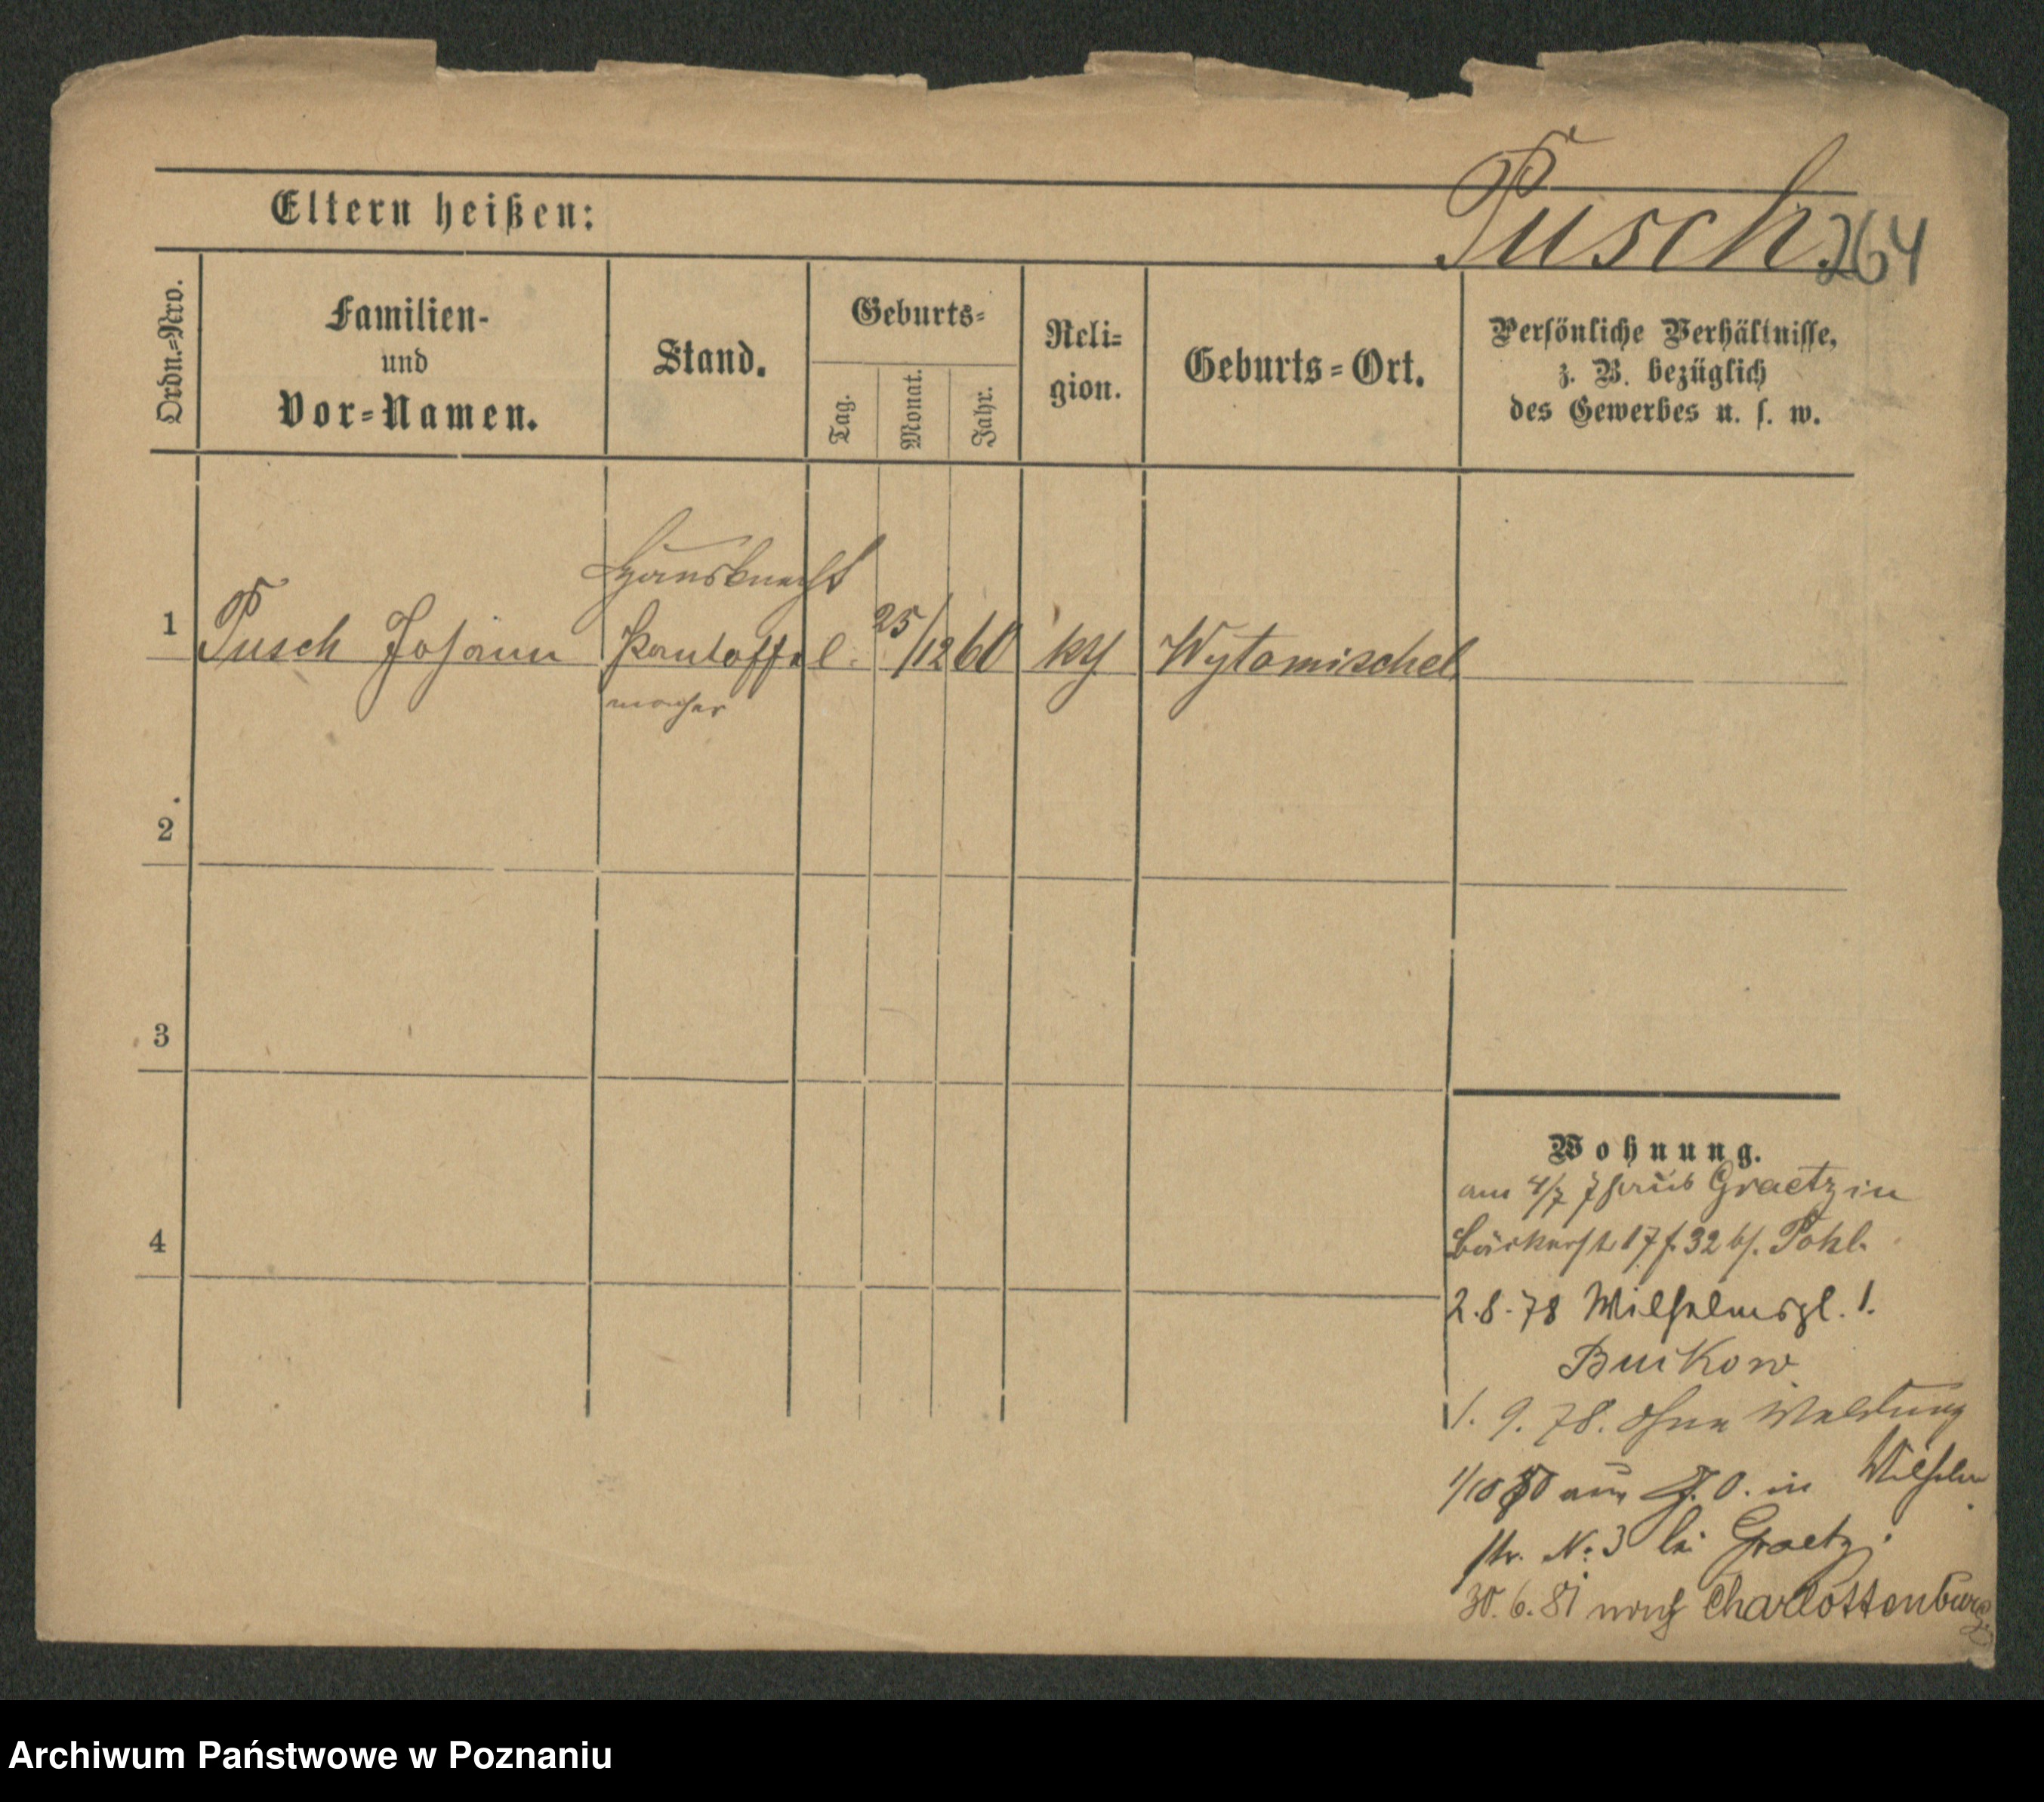 Pusch. 264
Eltern heißen:
Ordn.=Nro.
Familien-
und
Vor=Namen.
Stand.
Geburts=
Tag.
Monat.
Jahr.
Reli=
gion.
Geburts=Ort.
Persönliche Verhältnisse,
z. B. bezüglich
des Gewerbes u. s. w.
Hausknecht
1 Pusch Johann Pantoffel 25/12 60 kth Wytomischel
macher
2
3
4
Wohnung.
am 4/7 78 aus Graetz in
Bäckerstr 17 f. 32 b/. Pohl.
2.8.78 Wilhelmspl. 1.
Buckow
1. 9. 78. ohne Meldung
1/10 80 aus in Wilhelm
str. No 3 bei Graetz.
30. 6. 81 nach Charlottenburg
Archiwum Państwowe w Poznaniu